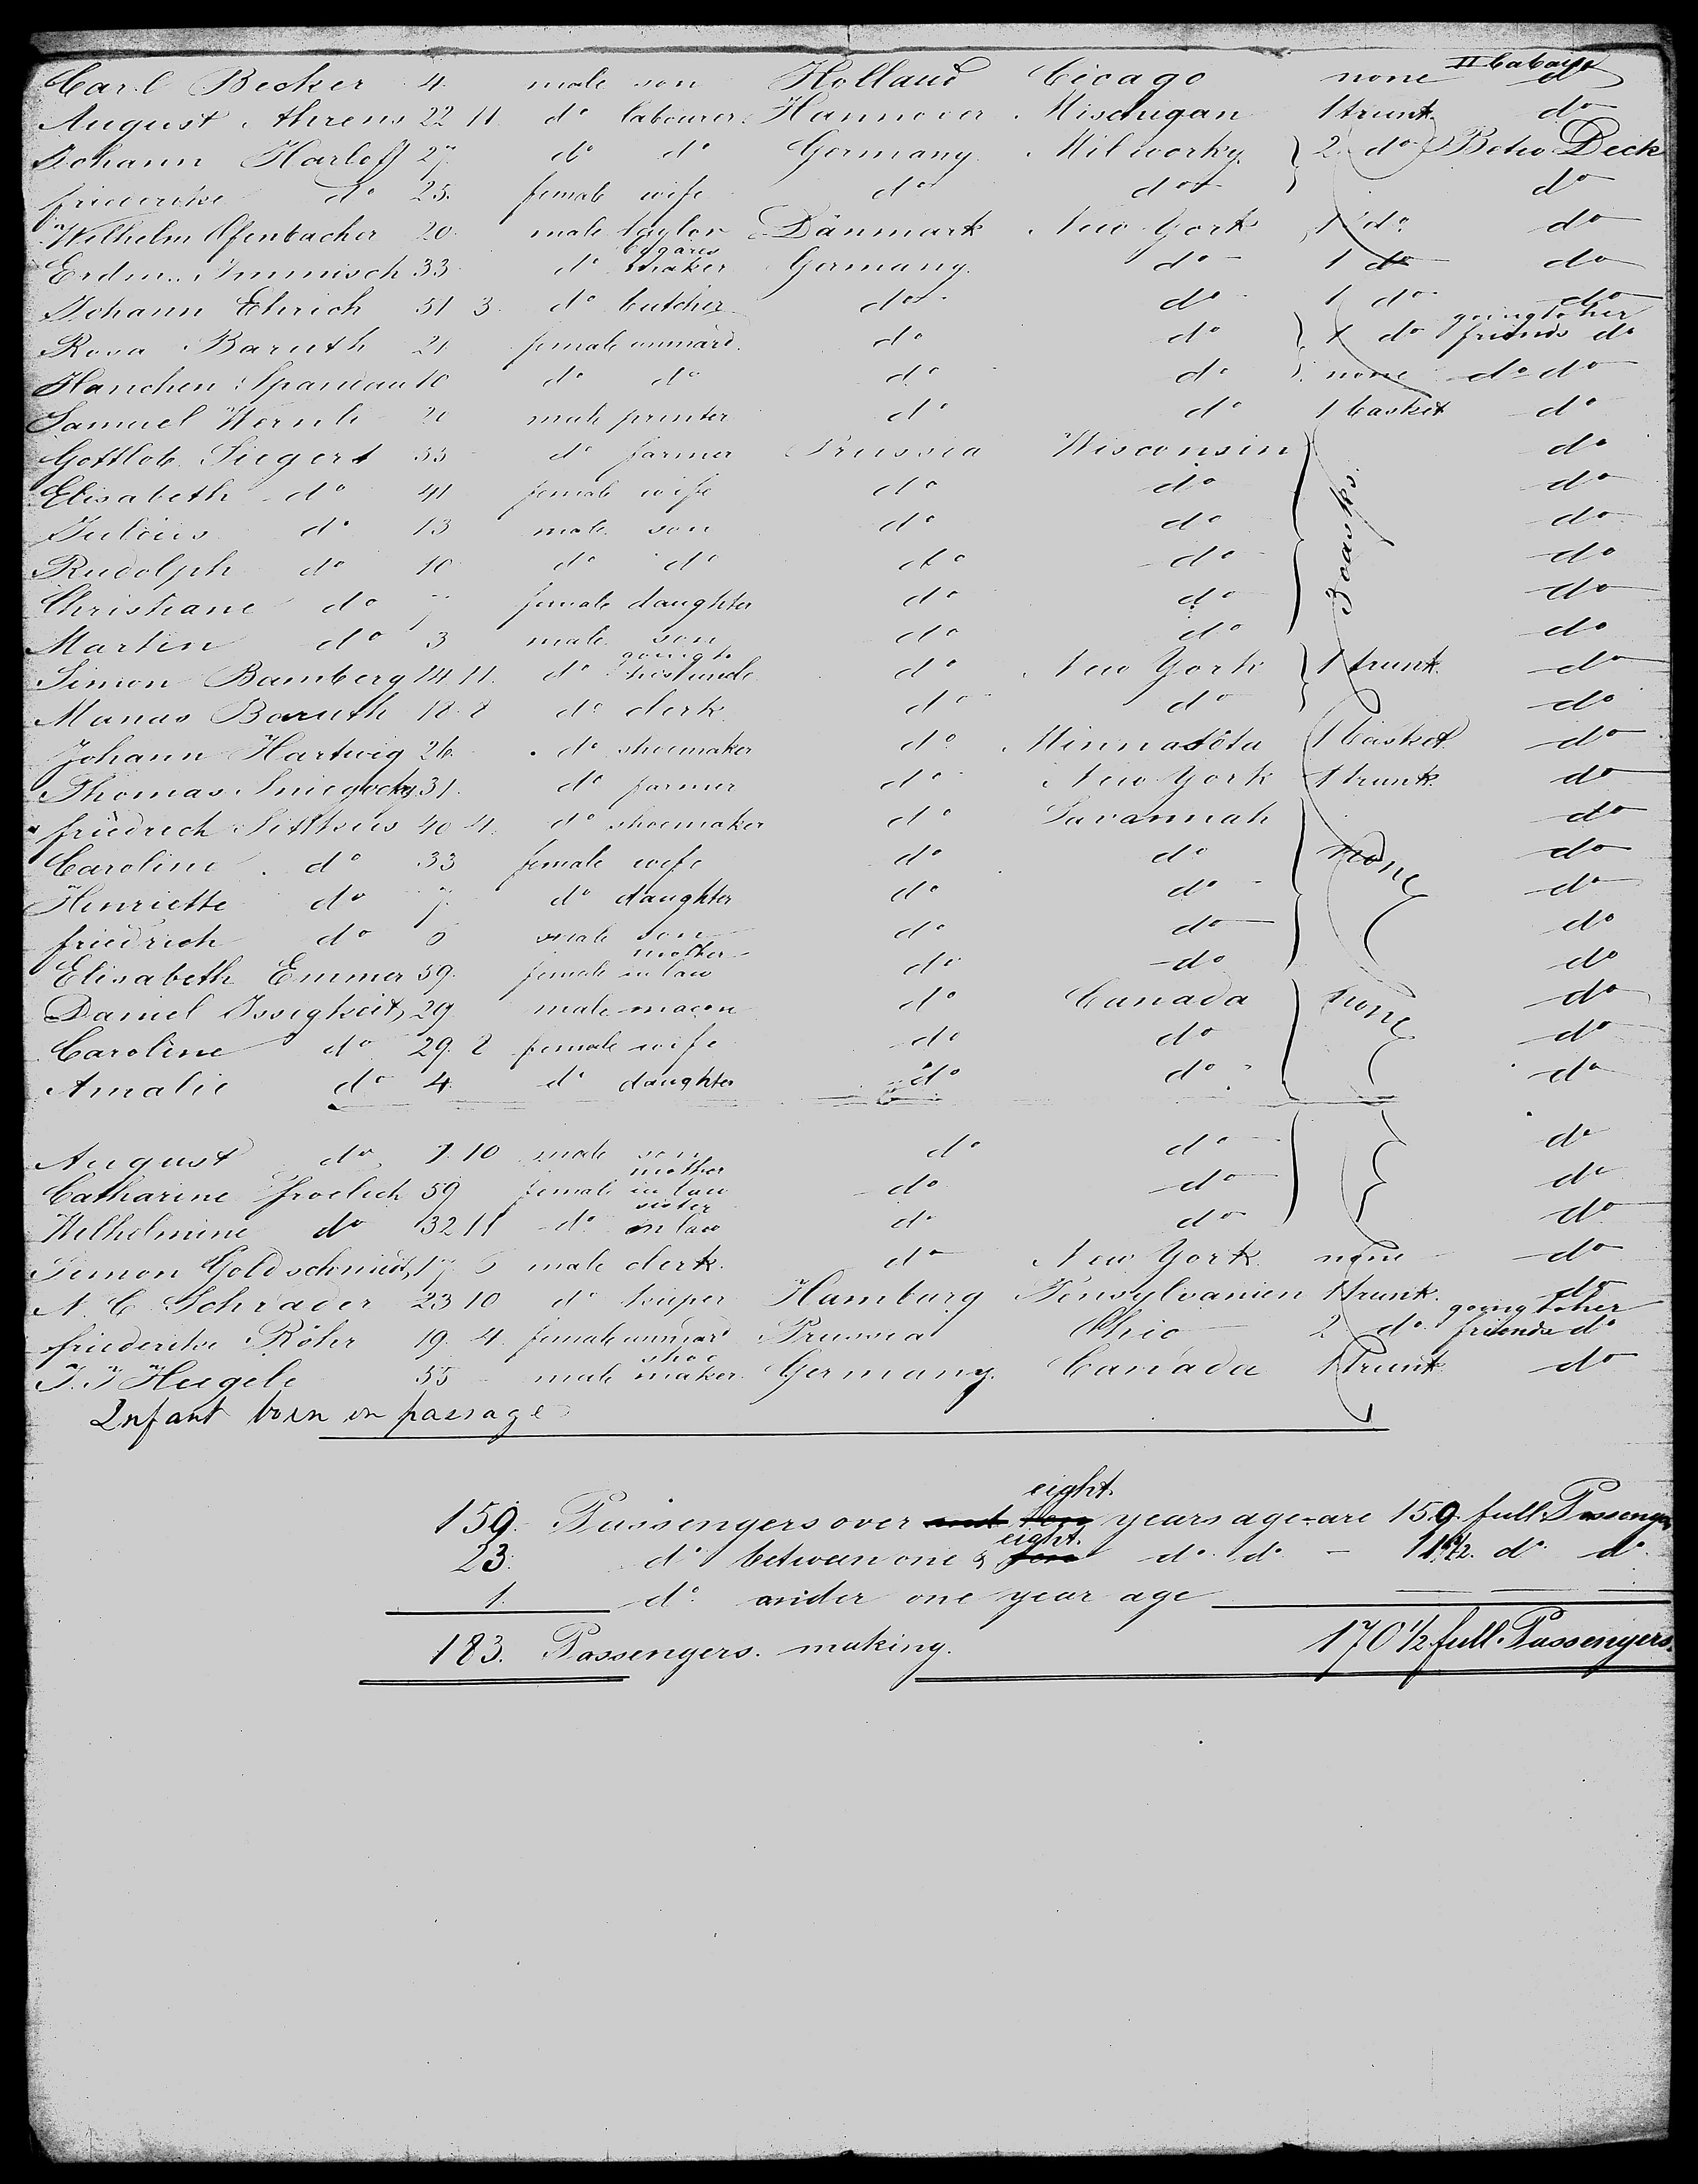 Carl Becker 4 male son Holland Cicago none II Cabaise do
August Ahrens 22 11 do labourer Hannover Mischigan 1 trunk do
Johann Harloff 27 do do Germany Milworky 2 do Betw Deck
friederike do 25 female wife do do do
Wilhelm Ofenbacher 20 male taylor Dänmark New York 1 do do
Erdm. Immisch 33 do maker Germany do 1 do do
Johann Ehrich 51 3 do butcher do do 1 do do
Rosa Baruth 21 female unmard do do 1 do going to her friends do
Hanchen Spandau 10 do do do do none do do
Samuel 20 male printer do do 1 basket do
Gottlob Siegert 33 do farmer Prussia Wisconsin do
Elisabeth do 41 female wife do do do
Julius do 13 male son do do do
Rudolph do 10 do do do do 3 do
Christiane do 7 female daughter do do do
Martin do 3 male son do do do
Simon Bamberg 14 11 do going to his uncle do New York 1 trunk do
Manas Baruth 18 8 do clerk do do do
Johann Hartwig 26 do shoemaker do Minnasota 1 basket do
Thomas 31 do farmer do New York 1 trunk do
friedrich 40 4 do shoemaker do Savannah do
Caroline do 33 female wife do do none do
Henriette do 7 do daughter do do do
friedrich do male son do do do
Elisabeth Emmer 59 female mother in law do do do
Daniel Issigkeit 29 male macon do Canada none do
Caroline do 29 8 female wife do do do
Amalie do 4 do daughter do do do
August do 1 10 male son do do do
Catharine froelich 59 female mother in law do do do
Wilhelmine do 32 11 do sister in law do do do
Simon Goldschmidt 17 6 male clerk do New York none do
N. C. Schrader 23 10 do Hamburg Pensylvanien 1 trunk do
friederike Röhr 19 4 female unmard Prussia Ohio 2 do going to her friends do
J. J. Hugele 55 male shoe maker Germany Canada 1 trunk do
Infant born on passage
159. Passengers over eight years age are 159 full Passenger
23. do between one & eight do do - 11 1/2 do do
1. do under one year age
183. Passengers making. 170 1/2 full Passengers.